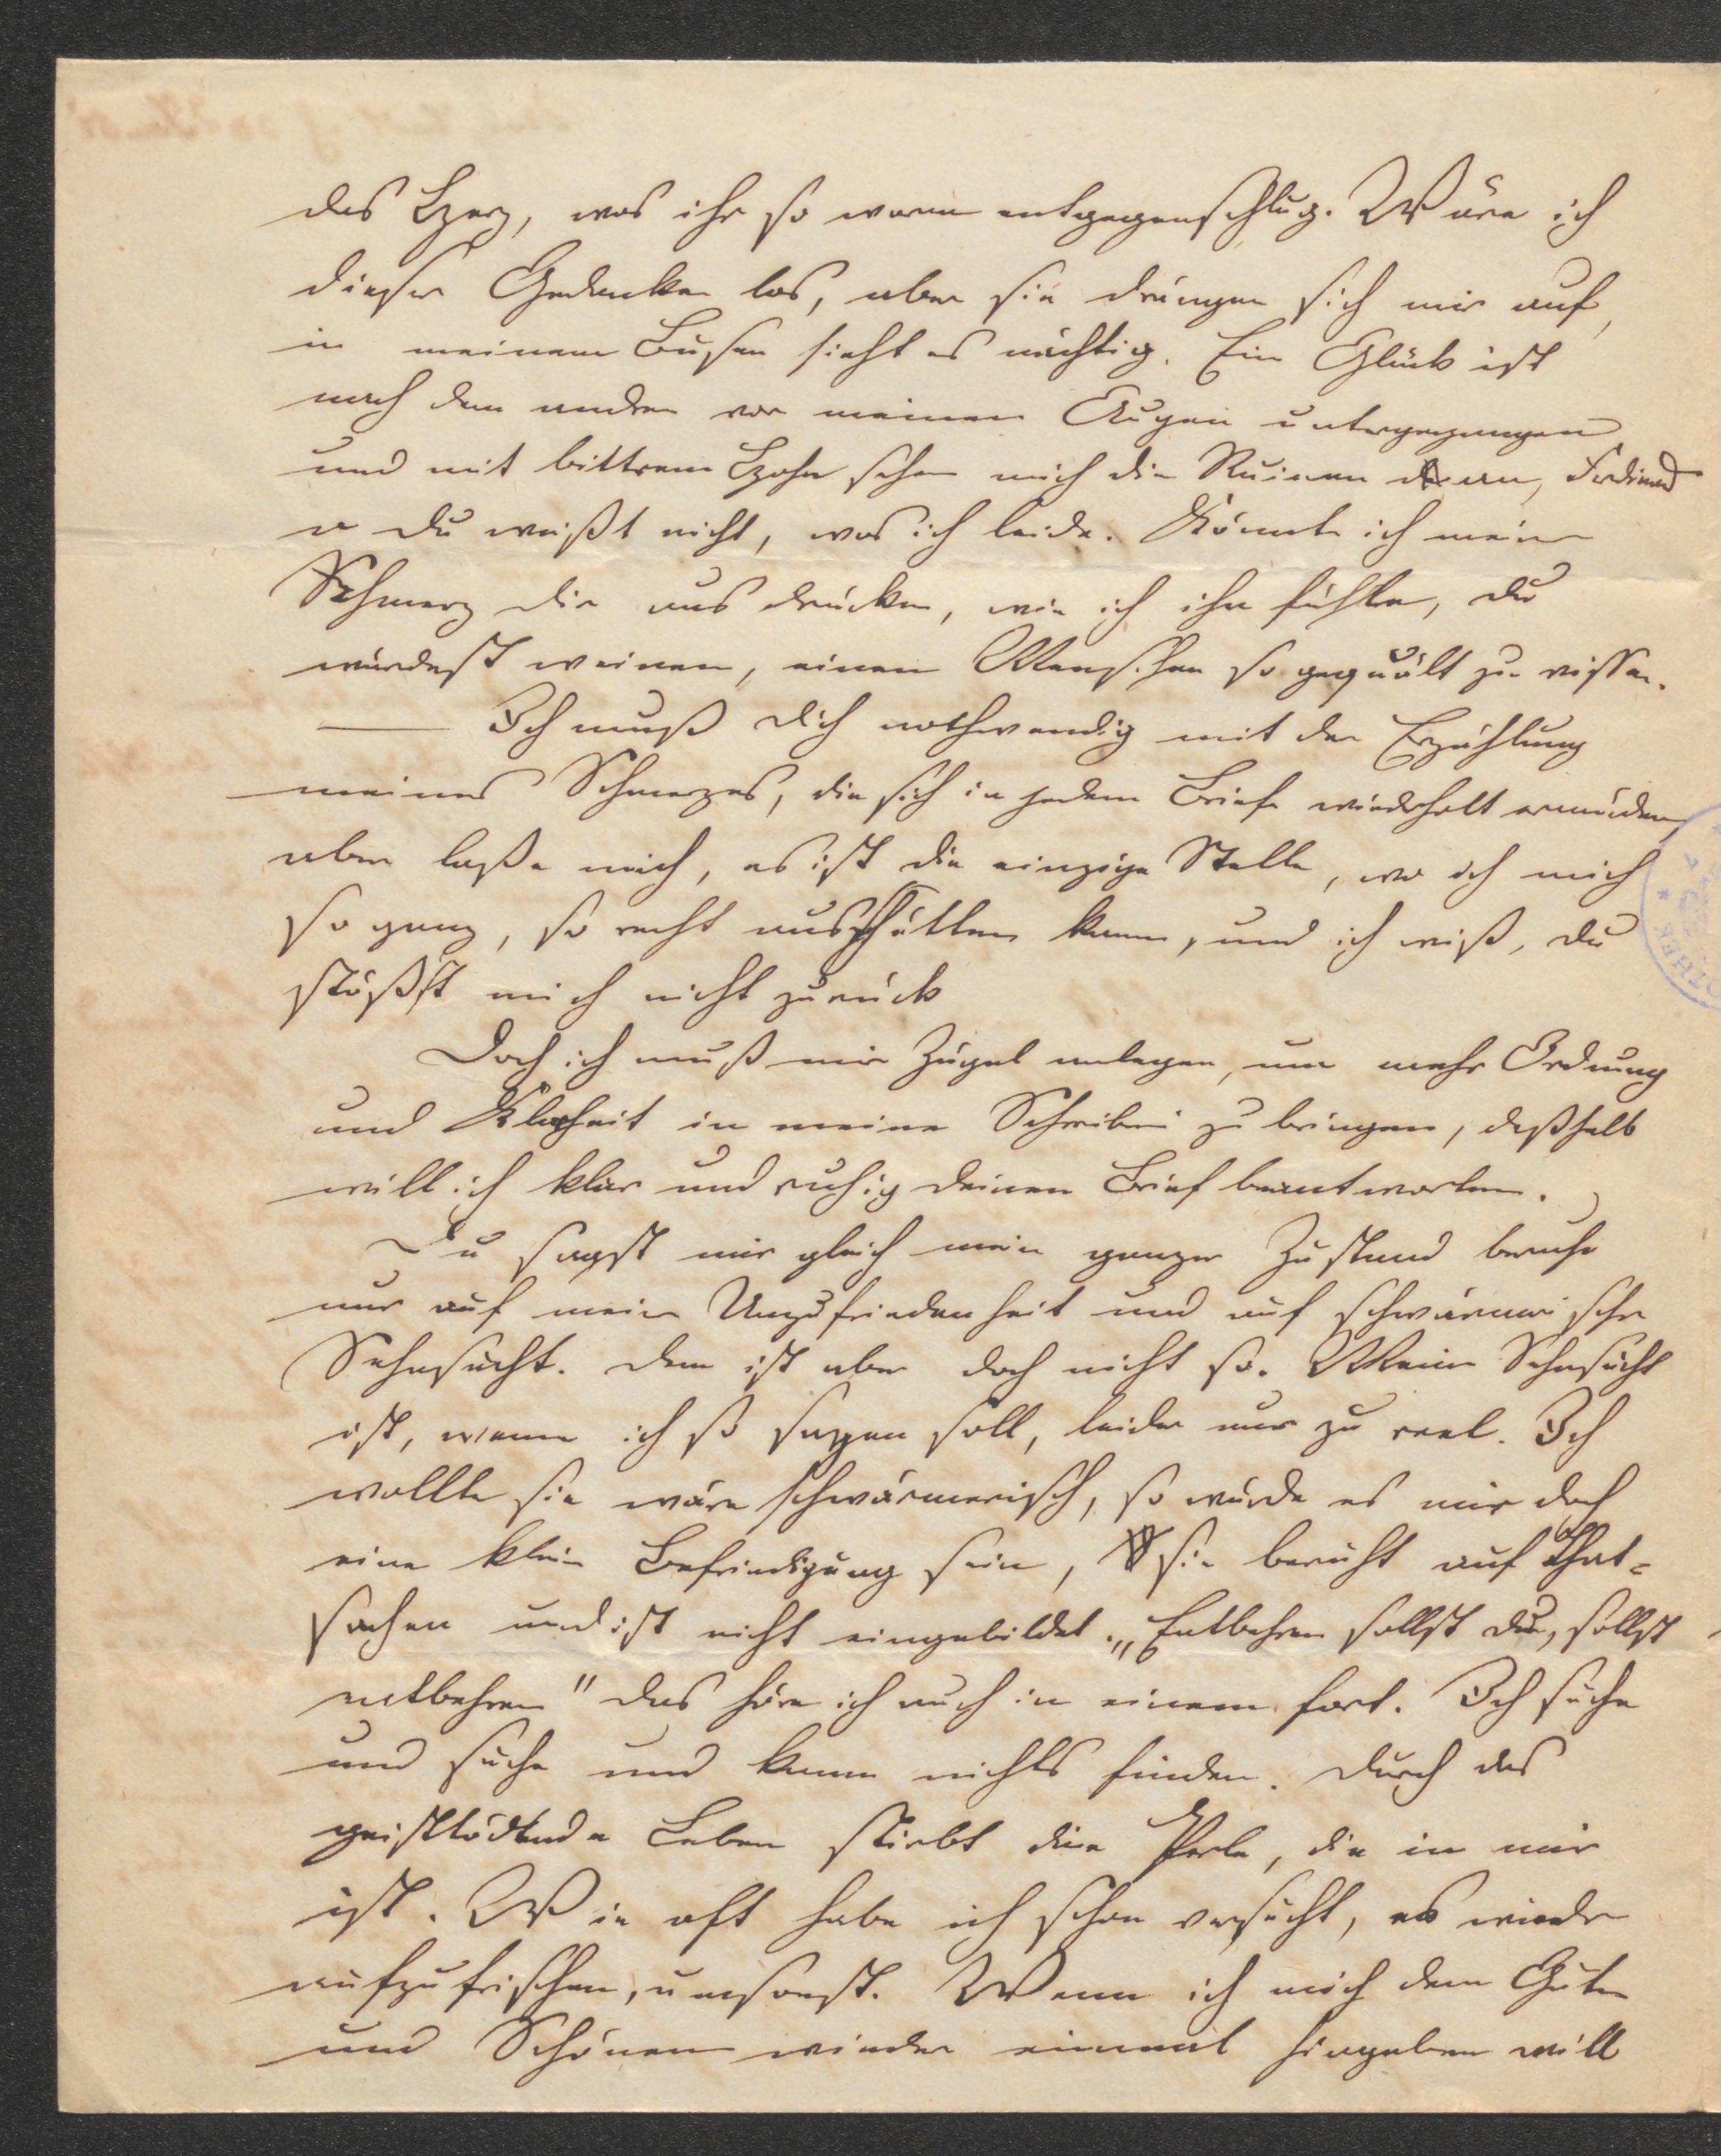 das Herz, was ihr so warm entgegenschlug. Wäre ich
dieser Gedanken los, aber sie drängen sich mir auf,
in meinem Busen sieht es nächtig. Ein Glück ist
nach dem andren vor meinen Augen untergegangen
und mit bittrem Hohn sehen mich die Ruinen an, Ferdinand
o du weißt nicht, was ich leide. Könnte ich mein
Schmerz dir ausdrücken, wie ich ihn fühle, du
würdest weinen, einen Menschen so gequält zu wissen.
— Ich muß dich nothwendig mit der Erzählung
meines Schmerzes, die sich in jedem Briefe wiederholt ermüden,
aber laße mich, es ist die einzige Stelle, wo ich mich
so ganz, so recht ausschütten kann, und ich weiß, du
stößst mich nicht zurück
Doch ich muß mir Zügel anlegen, um mehr Ordnung
und Klarheit in meine Schreiben zu bringen, deßhalb
will ich klar und ruhig deinen Brief beantworten.
Du sagst mir gleich mein ganzer Zustand beruhe
nur auf meiner Unzufriedenheit und auf schwärmerische
Sehnsucht. Dem ist aber doch nicht so. Meine Sehnsucht
ist, wenn ich so sagen soll, leider nur zu reel. Ich
wollte sie wäre schwärmerisch, so würde es mir doch
eine kleine Befriedigung sein, sie beruht auf That-
sachen und ist nicht eingebildet. „Entbehren sollst du, sollst
entbehren" das höre ich auch in einem fort. Ich suche
und suche und kann nichts finden. Durch das
geisttödtende Leben stirbt die Perle, die in mir
ist. Wie oft habe ich schon versucht, es wieder
aufzufrischen, umsonst. Wenn ich mich dem Guten
und Schönen wieder einmal hingeben will